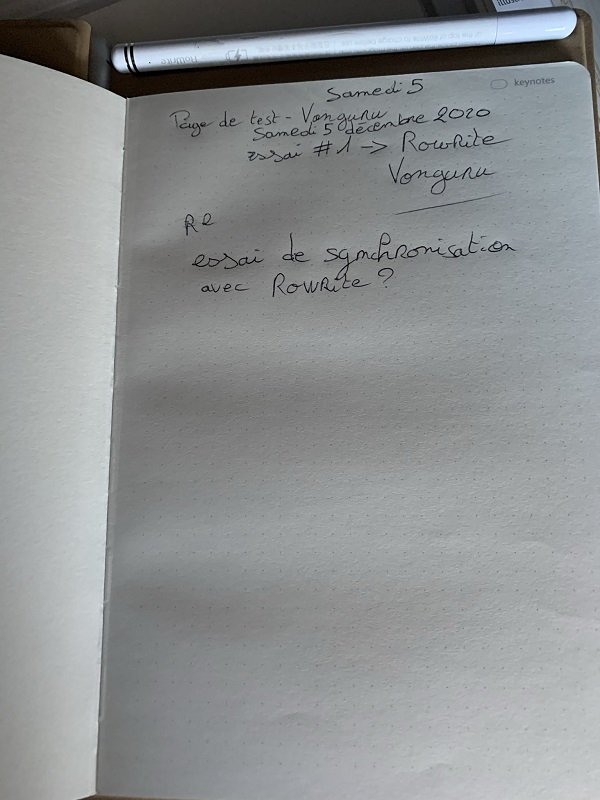 Samedi 5
keynotes
Page de test - Vonguru
Samedi 5 décembre 2020
essai #1 -> Rowrite
Vonguru
Re
essai de synchronisation
avec Rowrite ?